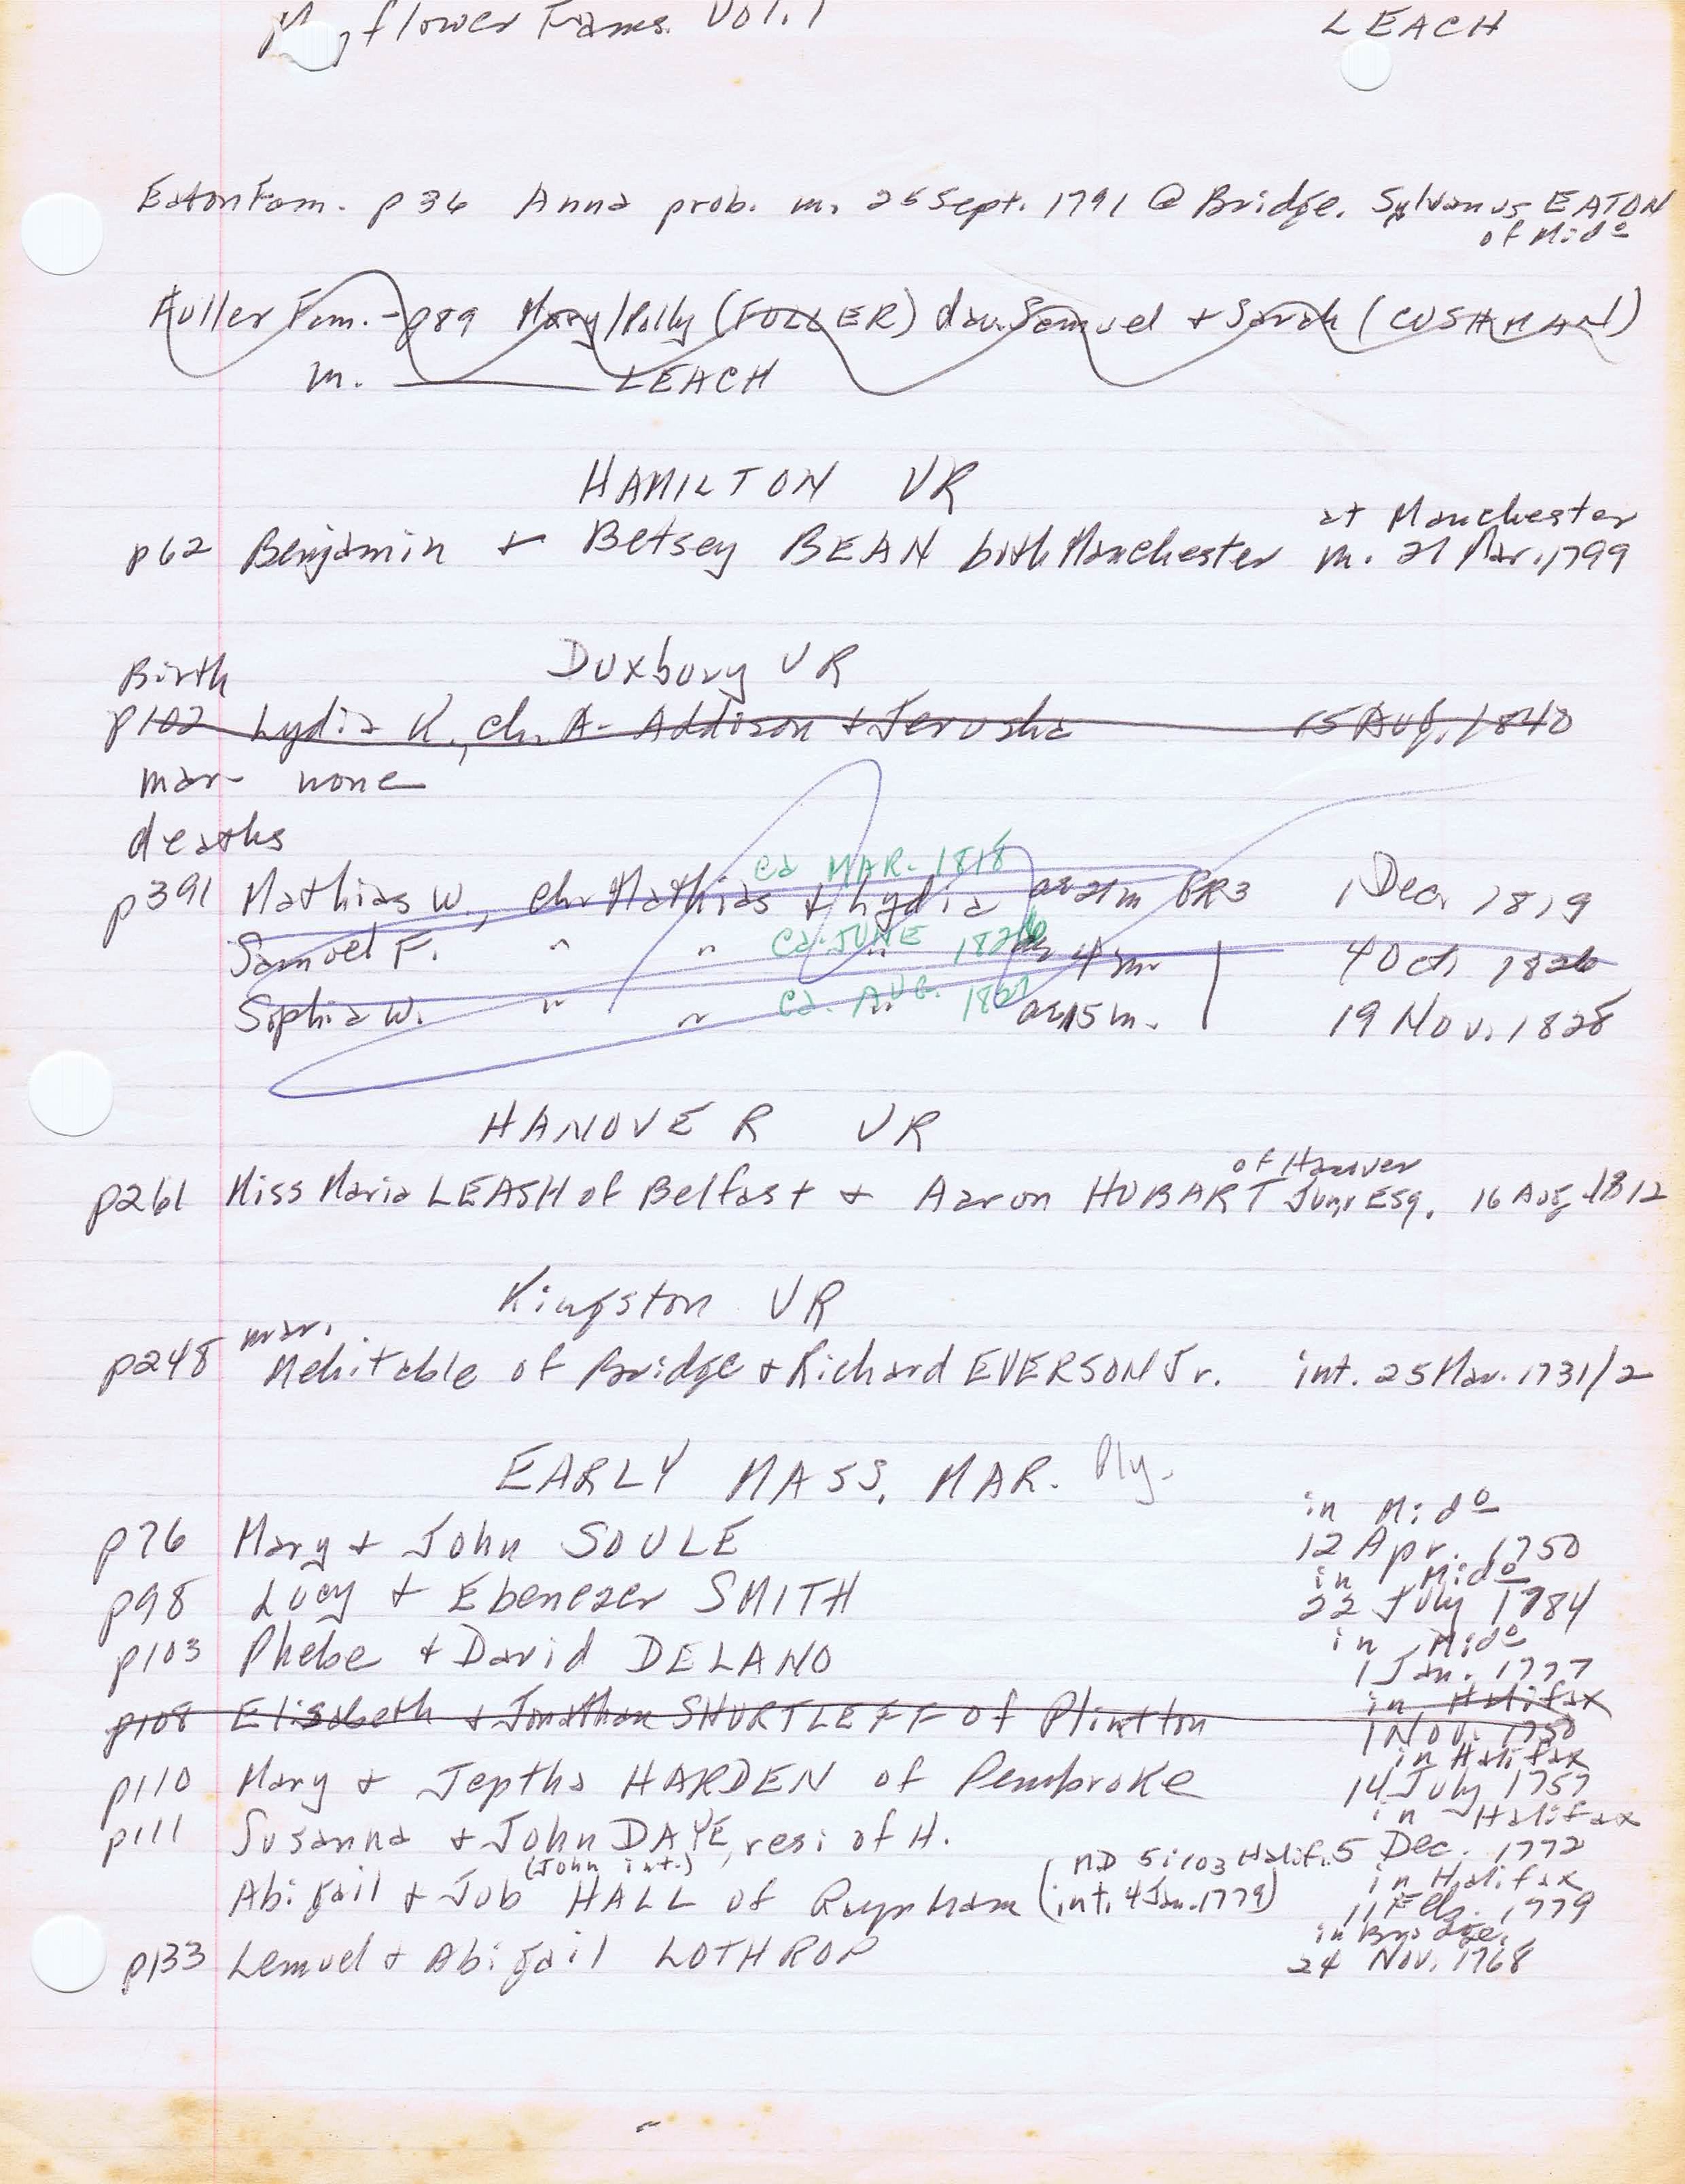 Mayflower Fams. Vol. 1 LEACH
Eaton Fam. p 36 Anna prob. m. 25 Sept. 1791 @ Bridge. Sylvanus EATON
of Mido
Fuller Fam. - p89 Mary/Polly (FULLER) dau. Samuel + Sarah (CUSHMAN)
m. ______ LEACH
HAMILTON VR
at Manchester
p62 Benjamin + Betsey BEAN both Manchester m. 21 Mar. 1799
Duxbury VR
Birth
p102 Lydia K., ch. A- Addison + Jerusha 15 Aug. 1840
mar none
deaths
ca MAR. 1818
p391 Mathias W., ch. Mathias + Lydia ae 21m GR3 1 Dec. 1819
ca. JUNE 1826
Samuel F. " " " ae 4 m 4 Oct 1826
ca. AUG. 1827
Sophia W. " " " ae 15 m. 19 Nov. 1828
HANOVER VR
of Hanover
p261 Miss Maria LEASH of Belfast + Aaron HUBART Junr Esq. 16 Aug 1812
Kingston VR
mar.
p248 Mehitable of Bridge + Richard EVERSON Jr. int. 25 Mar. 1731/2
EARLY MASS. MAR. Ply.
in Mido
p76 Mary + John SOULE 12 Apr. 1750
in Mido
p98 Lucy + Ebenezer SMITH 22 July 1784
in Mido
p103 Phebe + David DELANO 1 Jan. 1777
in Halifax
p108 Elisabeth + Jonathan SHURTLEFF of Plimtton 1 Nov. 1750
in Halifax
p110 Mary + Jeptha HARDEN of Pembroke 14 July 1757
in Halifax
p111 Susanna + John DAYE, resi of H. 5 Dec. 1772
(John int.) (MD 5:103 Halif. in Halifax
Abigail + Job HALL of Raynham int. 4 Jan. 1779) 11 Feb. 1779
in Bridge.
p133 Lemuel + Abigail LOTHROP 24 Nov. 1768